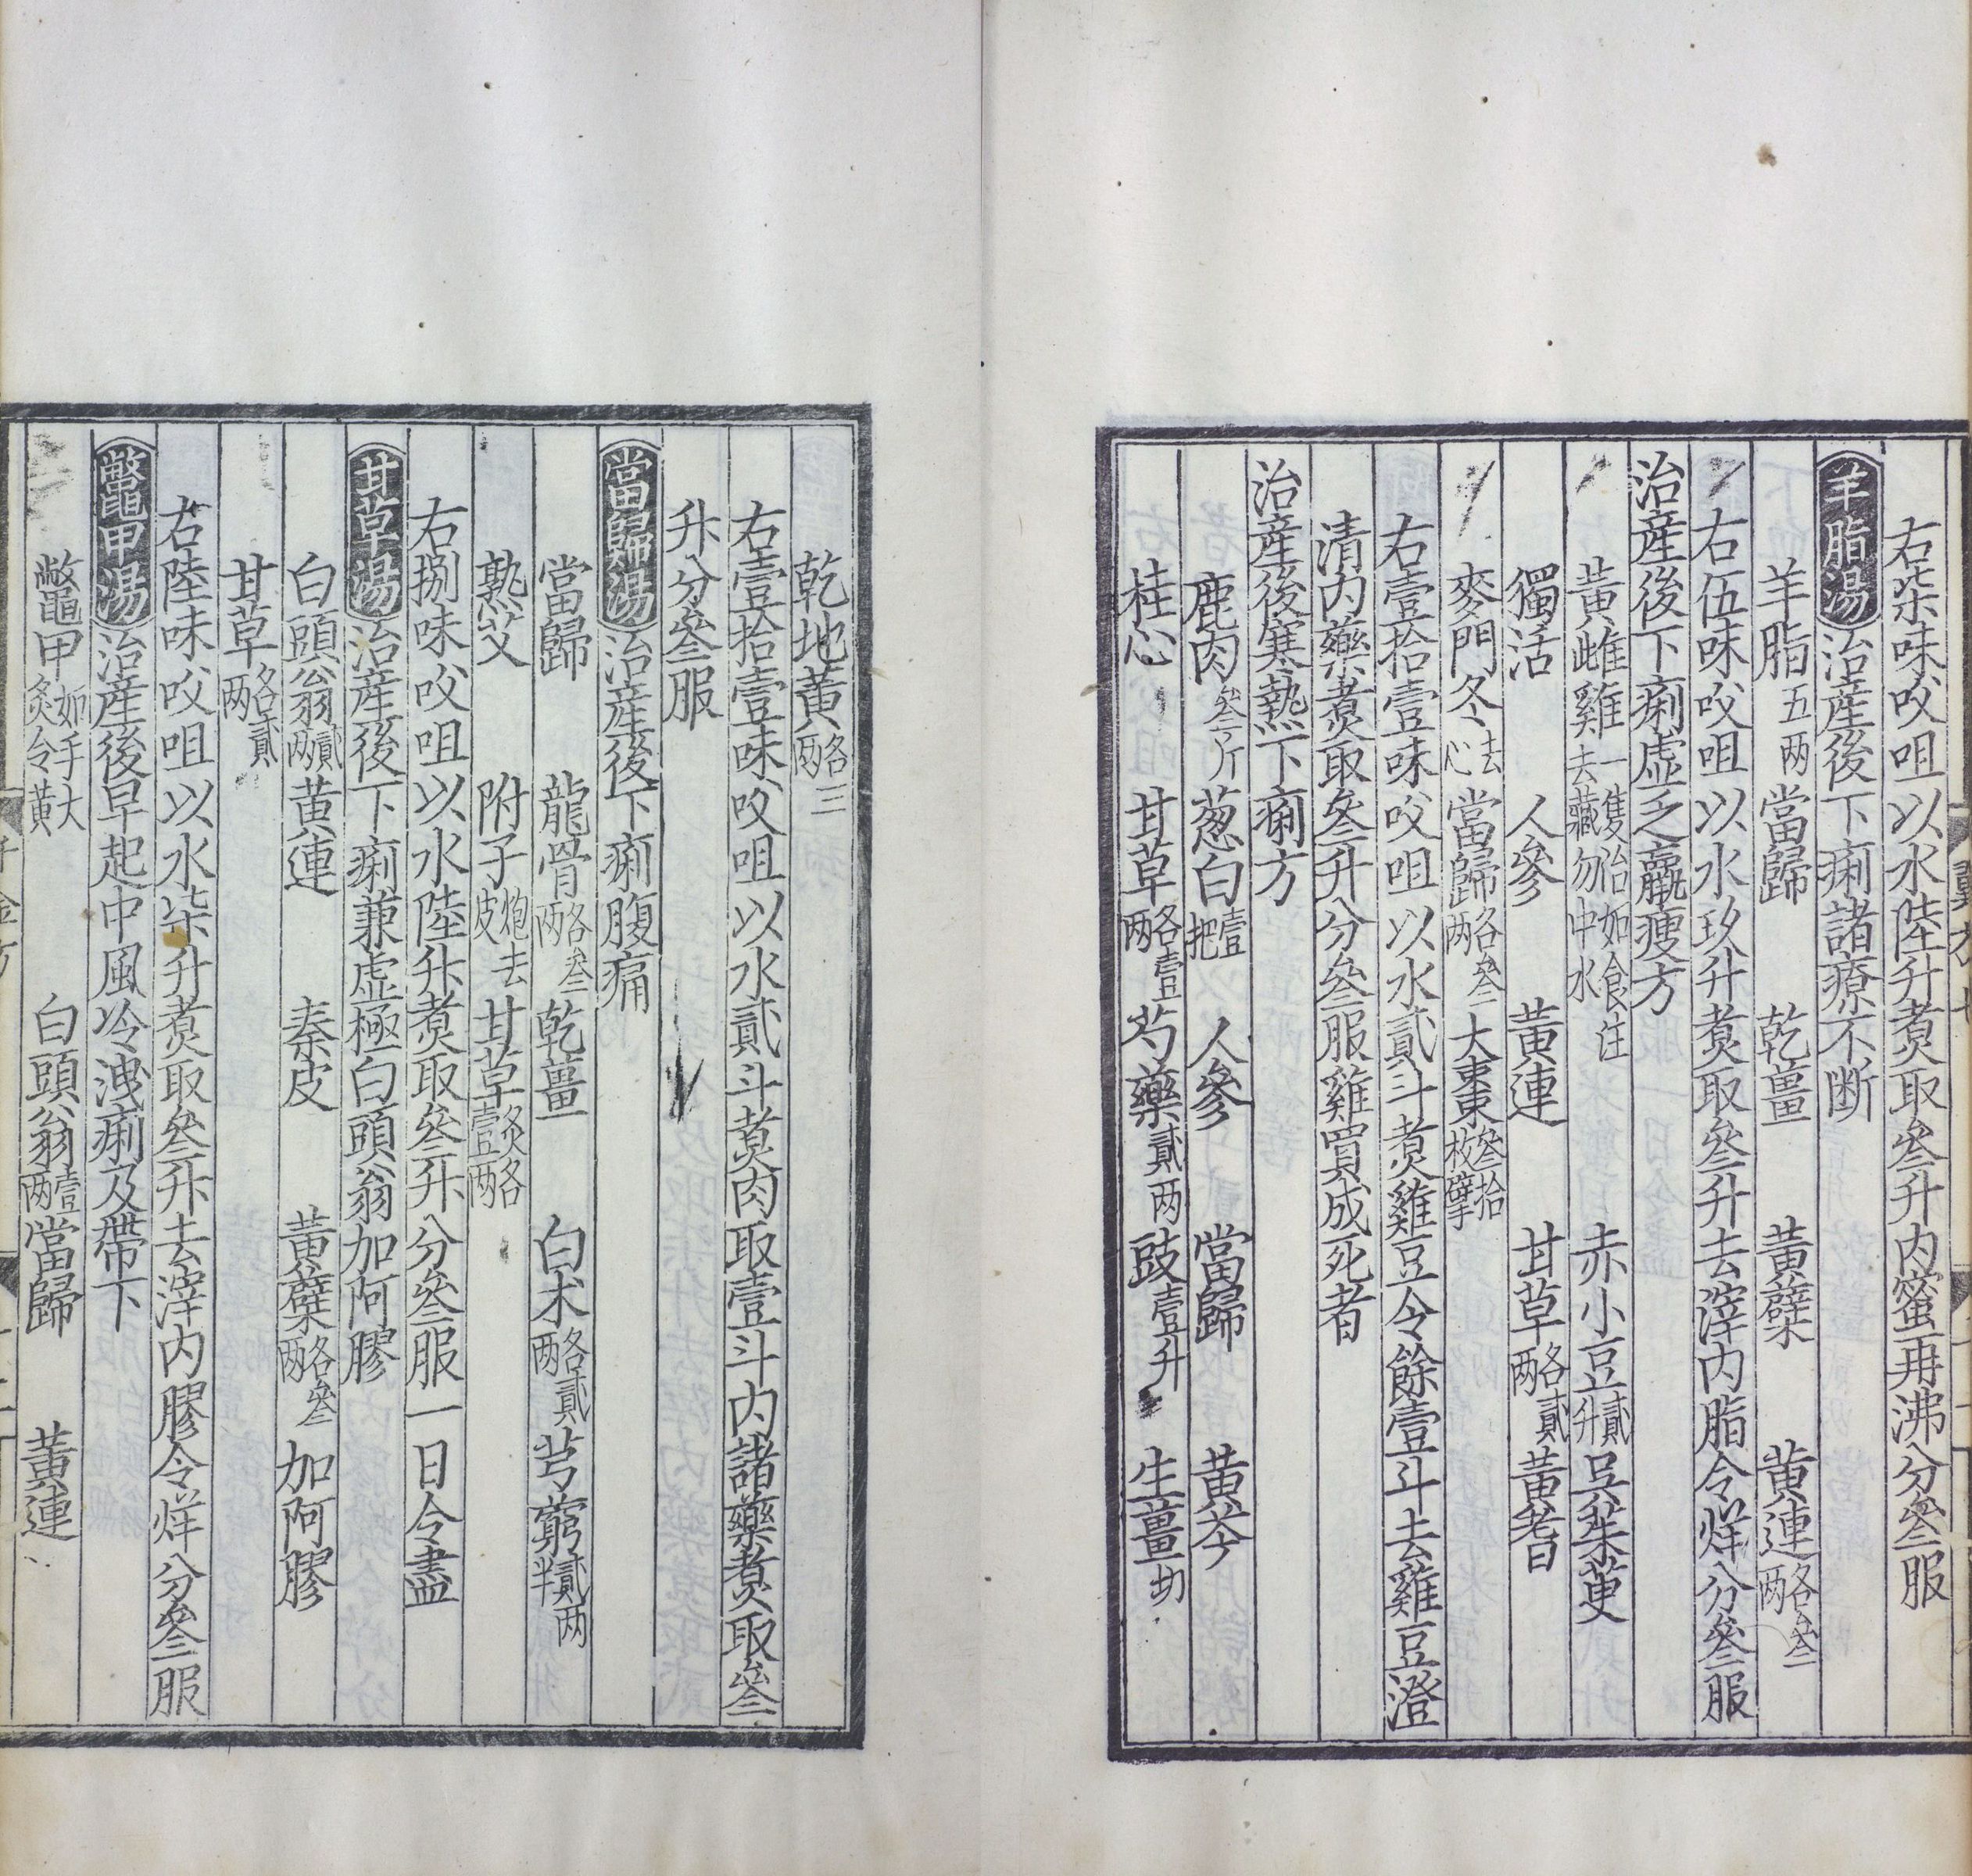 右柒味㕮咀以水陸升煑取叄升内蜜再沸分叄服
羊脂湯治產後下痢諸療不斷
羊脂五兩當歸 乾薑 黃蘗 黃連各叄兩
右伍味㕮咀以水玖升煑取叄升去滓内脂令烊分叄服
治產後下痢虛乏羸瘦方
黃雌雞一隻治如食注去藏勿中水 赤小豆貳升吳茱萸
獨活 人參 黃連 甘草各貳兩黃耆
麥門冬去心當歸各叄兩大棗叄拾枚擘
右壹拾壹味㕮咀以水貳斗煑雞豆令餘壹斗去雞豆澄
清内藥煑取叄升分叄服雞買成死者
治產後寒熱下痢方
鹿肉叄斤葱白壹把 人參 當歸 黃芩
桂心 甘草各壹兩芍藥貳兩豉壹升 生薑切
乾地黃各三兩
右壹拾壹味㕮咀以水貳斗煑肉取壹斗内諸藥煑取叄
升分叄服
當歸湯治產後下痢腹痛
當歸 龍骨各叄兩乾薑 白朮各貳兩芎藭貳兩半
熟艾 附子炮去皮甘草炙各壹兩
右捌味㕮咀以水陸升煑取叄升分叄服一日令盡
甘草湯治產後下痢兼虛極白頭翁加阿膠
白頭翁貳兩黃連 秦皮 黃蘗各叄兩 加阿膠
甘草各貳兩
右陸味㕮咀以水柒升煑取叄升去滓内膠令烊分叄服
鱉甲湯治產後早起中風冷洩痢及帶下
鱉甲如手大炙令黃 白頭翁壹兩當歸 黃連